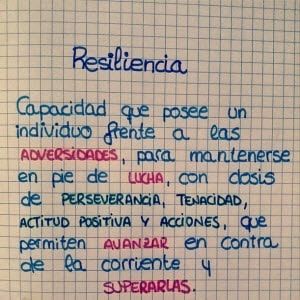 Resiliencia
Capacidad que posee un
individuo frente a las
ADVERSIDADES, para mantenerse
en pie de LUCHA, con dosis
de PERSEVERANCIA, TENACIDAD,
ACTITUD POSITIVA Y ACCIONES, que
permiten AVANZAR en contra
de la corriente y
SUPERARLAS.